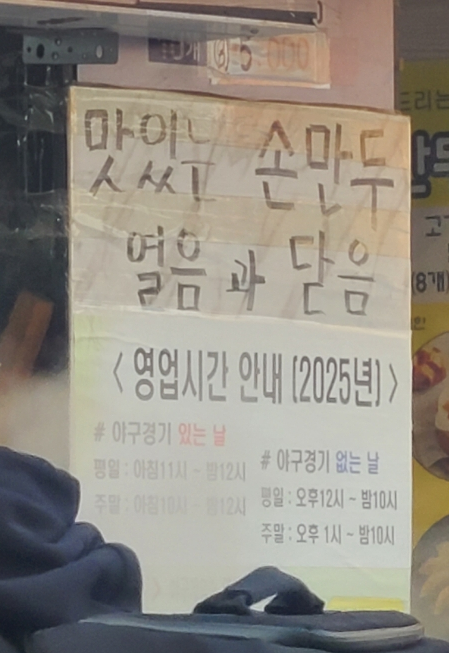 10개 (6) 5.000
맛있는 손만두
열음과 닫음
<영업시간 안내 (2025년)>
# 야구경기 있는 날
평일 : 아침11시 ~ 밤12시
주말 : 아침10시 ~ 밤12시
# 야구경기 없는 날
평일 : 오후12시 ~ 밤10시
주말 : 오후 1시 ~ 밤10시
드리는
고기
(8개)